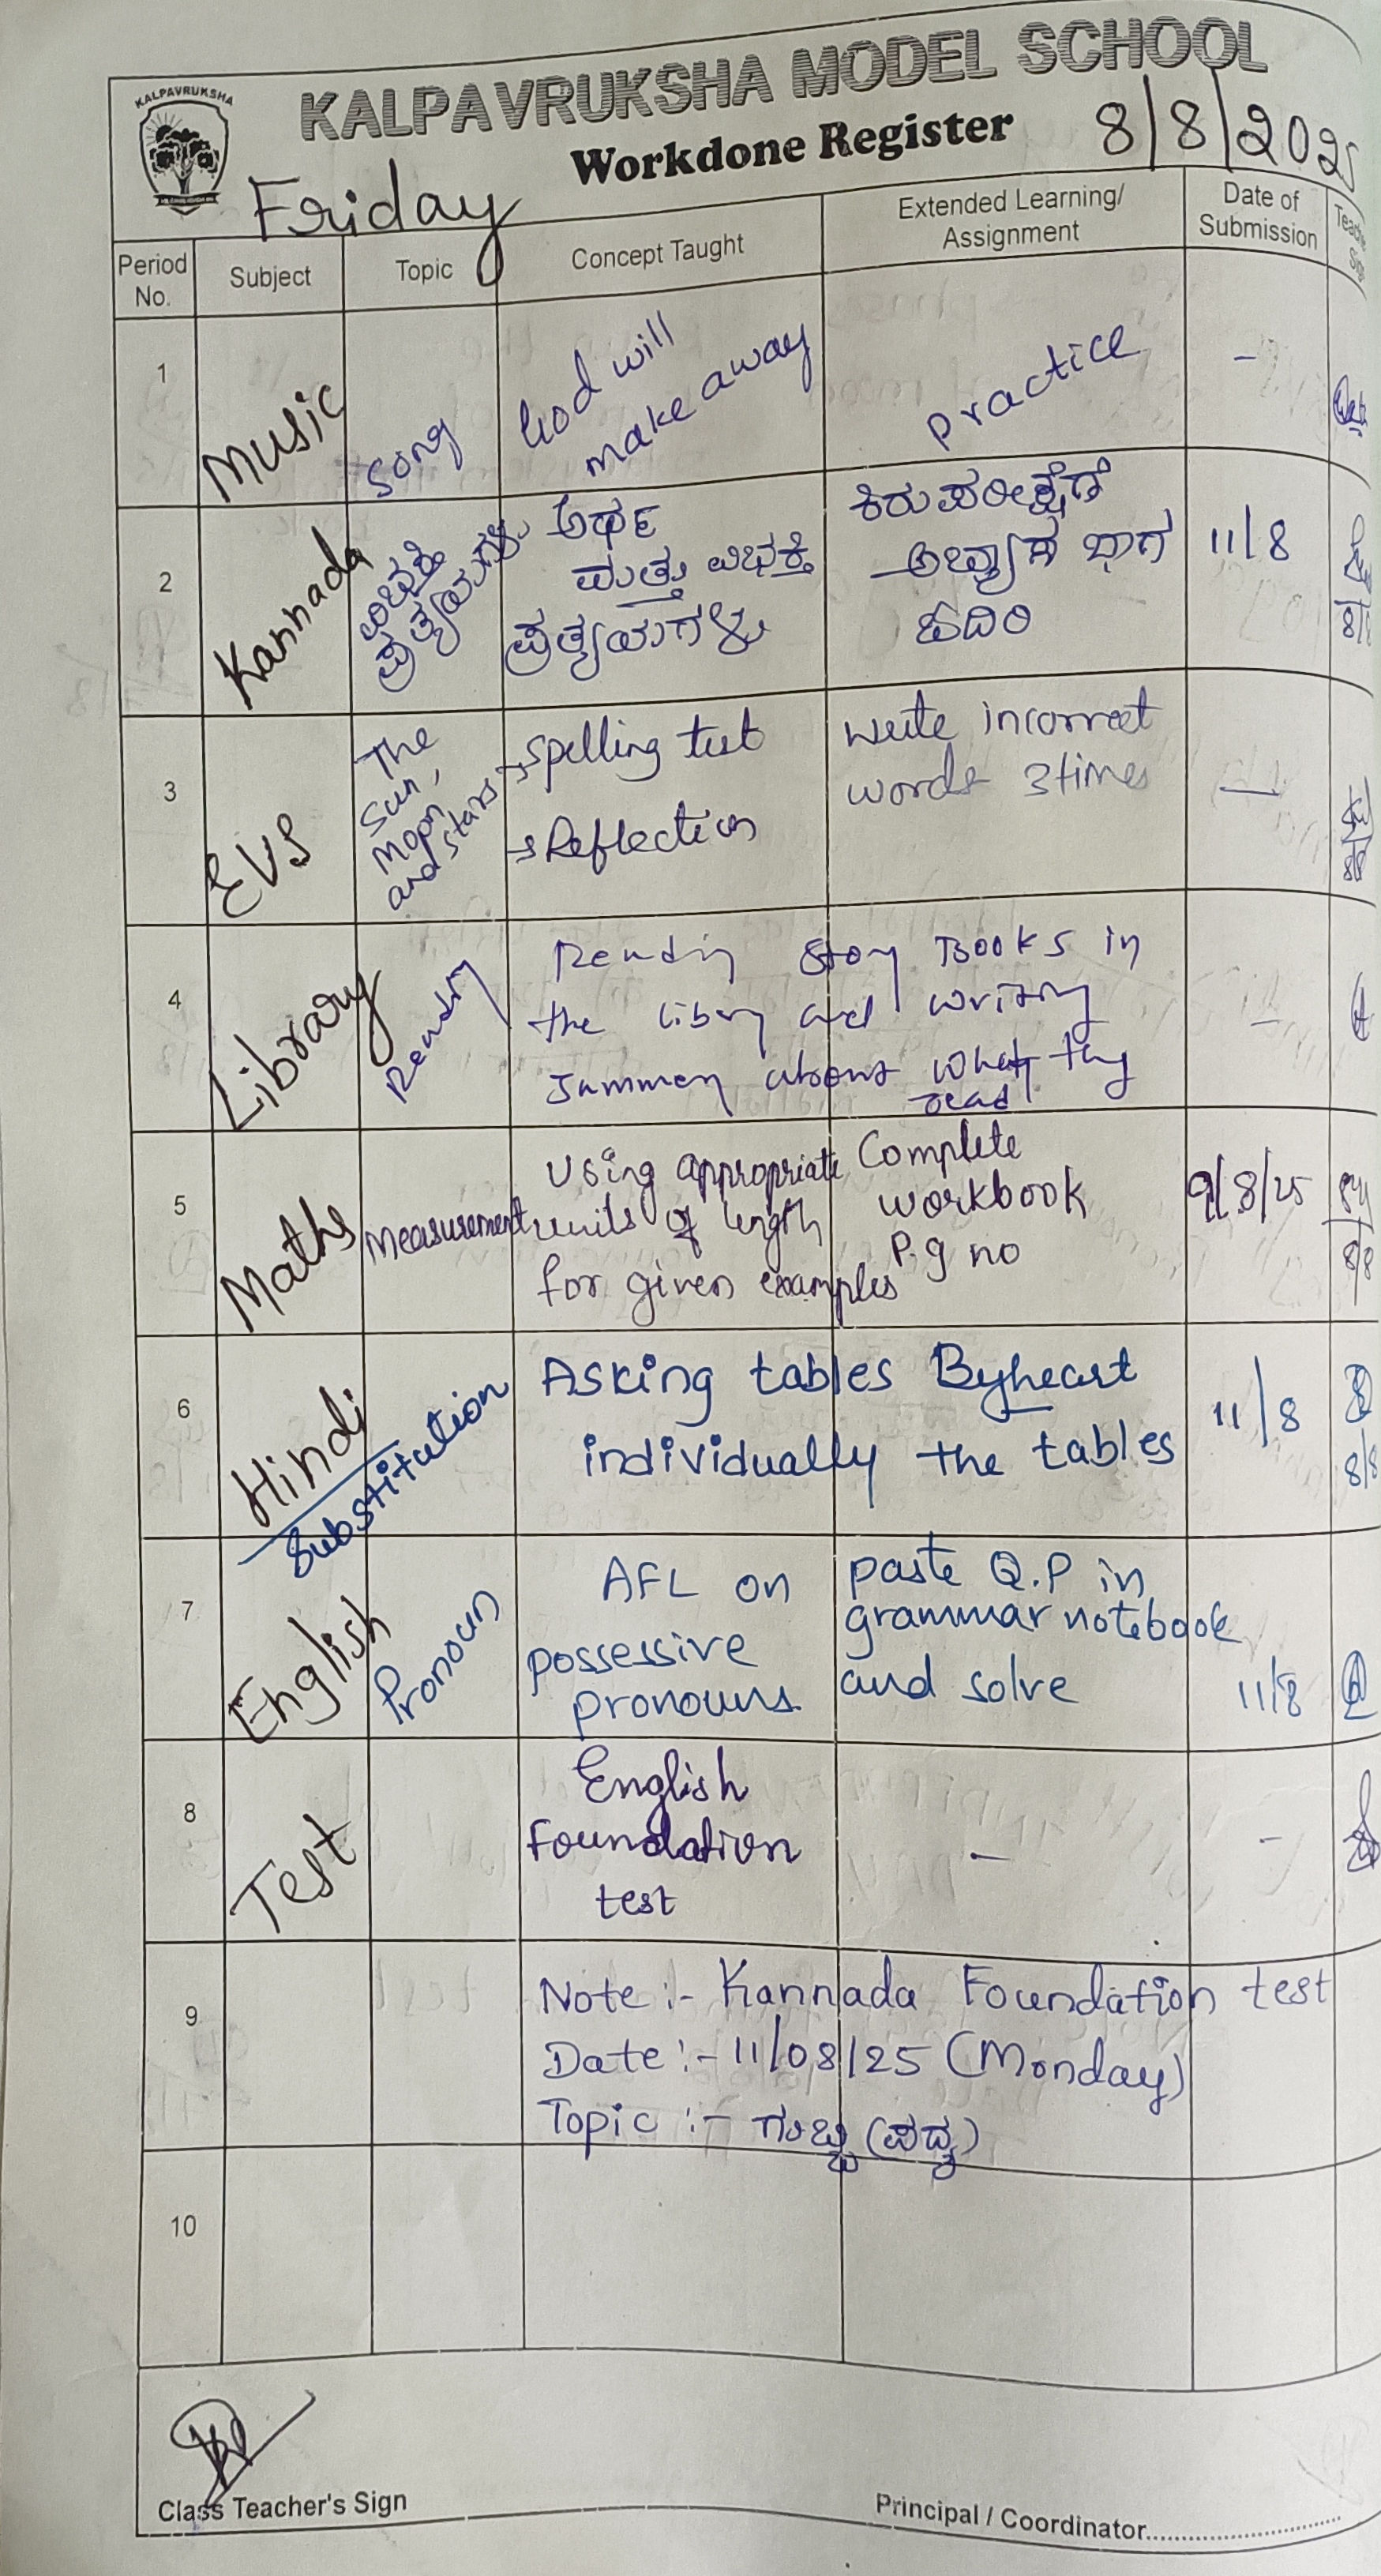 KALPAVRUKSHA
KALPAVRUKSHA MODEL SCHOOL
Workdone Register
8/8/2025
Friday
Period No.
Subject
Topic
Concept Taught
Extended Learning/
Assignment
Date of
Submission
1
Music
Song
God will
make away
practice
-
2
Kannada
ವಿಭಕ್ತಿ
ಪ್ರತ್ಯಯಗಳು
ಅರ್ಥ
ಮತ್ತು ವಿಭಕ್ತಿ
ಪ್ರತ್ಯಯಗಳು
ಕಿರುಪರೀಕ್ಷೆಗೆ
ಅಭ್ಯಾಸ ಭಾಗ
ಓದಿರಿ
11/8
3
EVS
The
Sun,
Moon
and stars
→ Spelling test
→ Reflection
Write incorrect
words 3 times
—
4
Library
Reading
Reading Story Books in
the library and writing
summary about what they
read
–
5
Maths
Measurement
Using appropriate
units of length
for given examples
Complete
workbook
P.g no
9/8/25
8/8
6
Hindi
Substitution
Asking tables
individually
Byheart
the tables
11/8
8/8
7
English
Pronoun
AFL on
possessive
pronouns
paste Q.P in
grammar notebook
and solve
11/8
8
Test
English
Foundation
test
–
-
9
Note :- Kannada Foundation test
Date :- 11/08/25 (Monday)
Topic :- ಗುಬ್ಬಿ (ಪದ್ಯ)
10
Class Teacher's Sign
Principal / Coordinator..............................